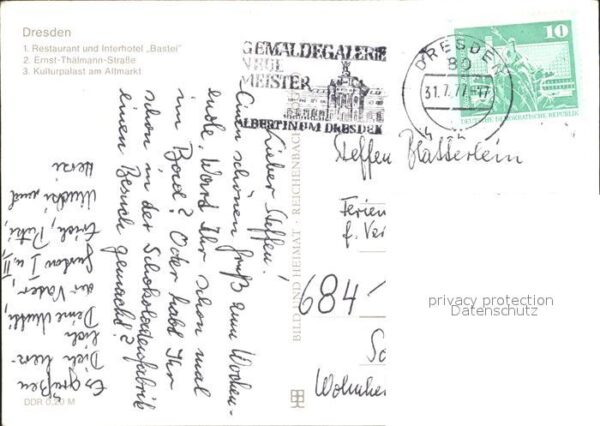 Dresden
1. Restaurant und Interhotel „Bastei"
2. Ernst-Thälmann-Straße
3. Kulturpalast am Altmarkt
GEMÄLDEGALERIE
NEUE
MEISTER
ALBERTINUM DRESDEN
DRESDEN
80
31.7.77-17
10
DEUTSCHE DEMOKRATISCHE REPUBLIK
Lieber Steffen!
Einen schönen Gruß zum Wochen-
ende. Ward Ihr schon mal
im Bad? Oder habt Ihr
schon in der Schokoladenfabrik
einen Besuch gemacht?
Es grüßen
Dich herz-
lich
Deine Mutti,
der Vater,
I u. II,
Mutti und
BILD UND HEIMAT · REICHENBACH
Steffen Blätterlein
Ferien
f. Ver
684-
Wohnhe
privacy protection
Datenschutz
DDR 0,20 M